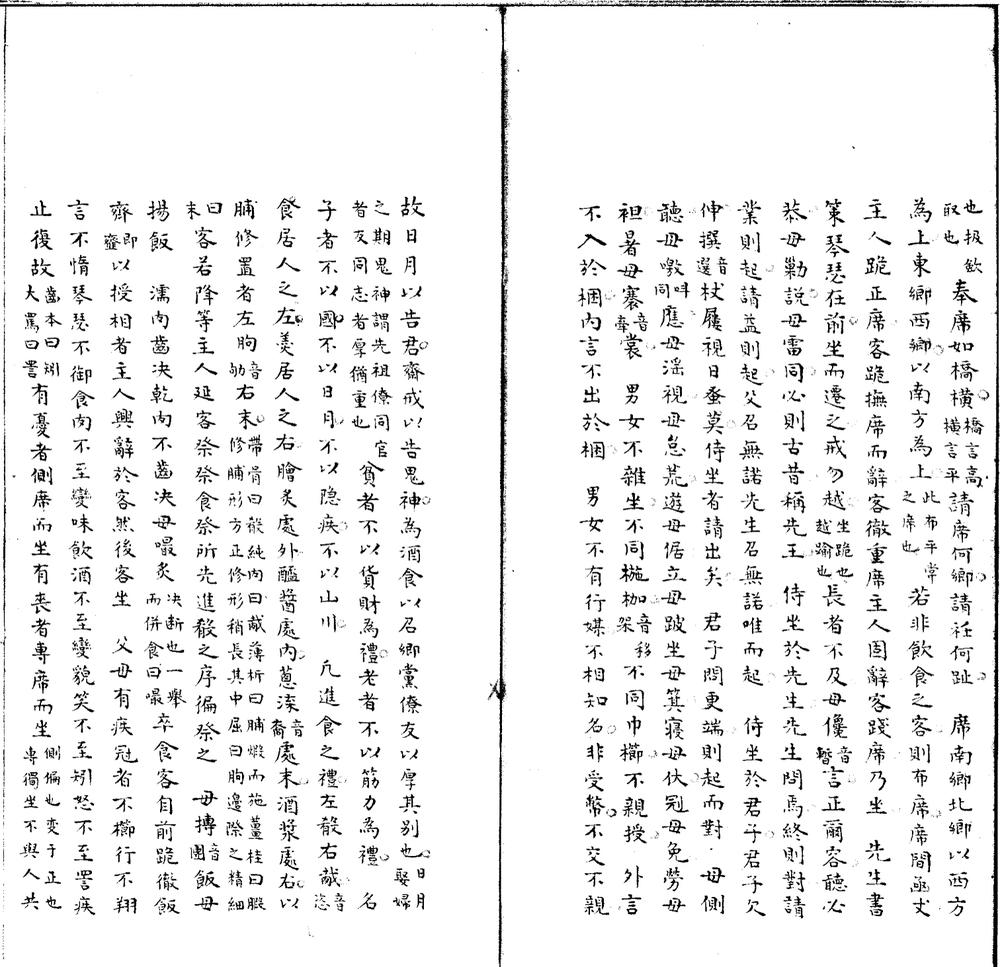 也扱飲取也奉席如橋橫橋言高橫言平請席何鄉請衽何趾　席南鄉北鄉以西方
為上東鄉西鄉以南方為上此布平常之席也　若非飲食之客則布席席間函丈
主人跪正席客跪撫席而辭客徹重席主人固辭客踐席乃坐　先生書
策琴瑟在前坐而遷之戒勿越坐跪也越踰也長者不及毋儳音暫言正爾容聽必
恭毋勦說毋雷同必則古昔稱先王　侍坐於先生先生問焉終則對請
業則起請益則起父召無諾先生召無諾唯而起　侍坐於君子君子欠
伸撰音選杖屨視日蚤莫侍坐者請出矣　君子問更端則起而對．毋側
聽毋噭音叫同應毋淫視毋怠荒遊毋倨立毋跛坐毋箕寢毋伏冠毋免勞毋
袒暑毋褰音牽裳　男女不雜坐不同椸枷音移架不同巾櫛不親授　外言
不入於梱內言不出於梱　男女不有行媒不相知名非受幣不交不親
故日月以告君齋戒以告鬼神為酒食以召鄉黨僚友以厚其別也日月娶婦
之期鬼神謂先祖僚同官者友同志者厚猶重也　貧者不以貨財為禮老者不以筋力為禮　名
子者不以國不以日月不以隐疾不以山川　凡進食之禮左殽右胾音恣
食居人之左羹居人之右膾炙處外醯醬處內蔥渫音裔處末酒漿處右以
脯修置者左朐音劬右末帶骨曰殽純肉曰胾薄析曰脯煅而施薑桂曰腶修脯形方正修形稍長其中屈曰朐邊際之精細
曰末客若降等主人延客祭祭食祭所先進殽之序徧祭之　毋摶音團飯毋
揚飯　濡肉齒決乾肉不齒決毋嘬炙決断也一舉而併食曰嘬卒食客自前跪徹飯
齊即齏以授相者主人興辭於客然後客坐　父母有疾冠者不櫛行不翔
言不惰琴瑟不御食肉不至變味飲酒不至變貌笑不至矧怒不至詈疾
止復故齒本曰矧大罵曰詈有憂者側席而坐有喪者專席而坐側偏也变于正也專獨坐不與人共